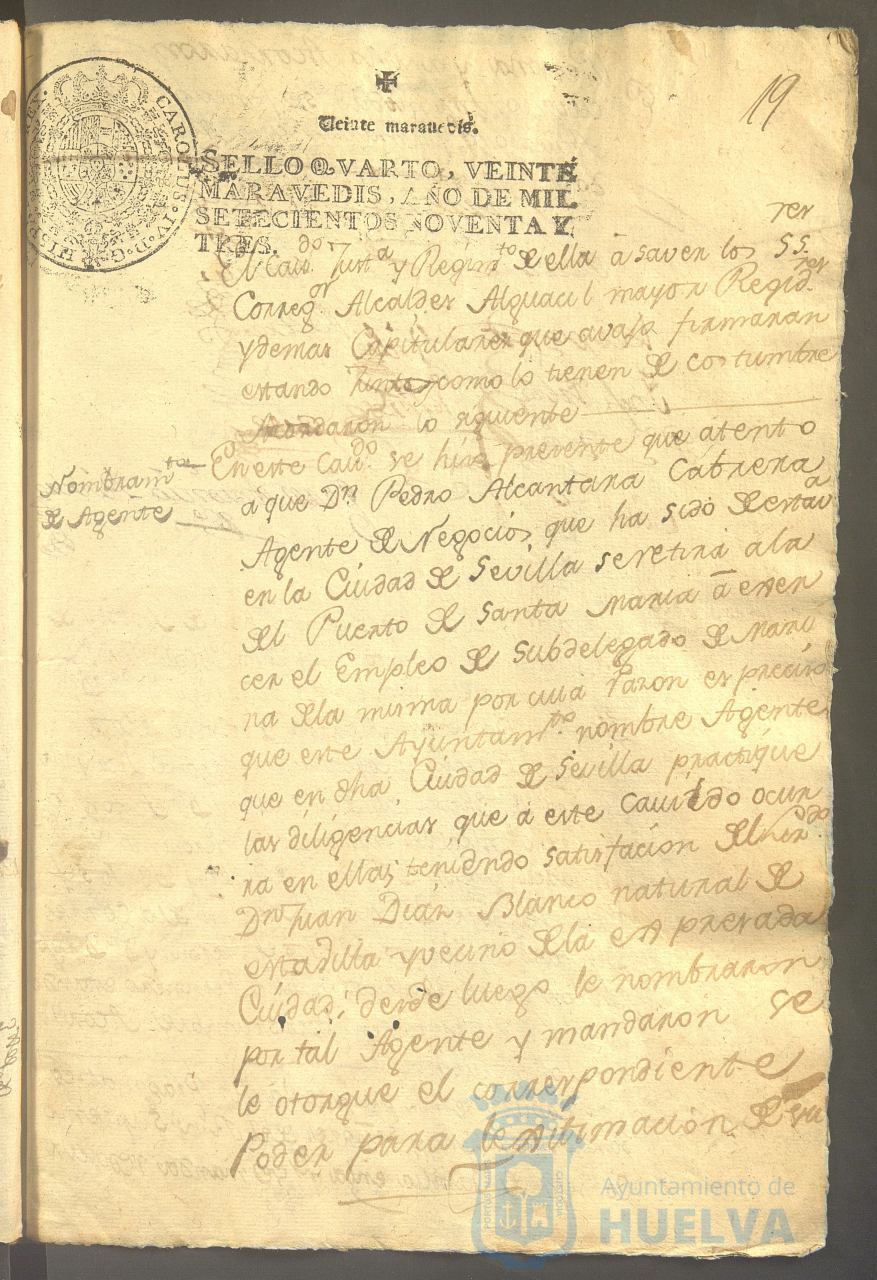 19
Veinte maravedis.
SELLO QVARTO, VEINTE
MARAVEDIS, AÑO DE MIL
SETECIENTOS NOVENTA Y
TRES.
CAROLUS IV D G HISP REX
El Cav.do Just.a y Regim.to de ella á saver los SS.res
Correg.or Alcaldes Alguacil mayor Regid.res
y demas Capitulares que avajo firmaran
estando Juntos como lo tienen de costumbre
Acordaron lo siguiente
Nombram.to
de Agente
En este Cav.do se hizo presente que atento
a que Dn Pedro Alcantara Cabrera
Agente de Negocios que ha sido de esta v.a
en la Ciudad de Sevilla se retira a la
del Puerto de Santa Maria á exer
cer el Empleo de Subdelegado de Mari
na de la misma por cuia razon es preciso
que este Ayuntam.to nombre Agente
que en dha Ciudad de Sevilla practíque
las diligencias que á este Cavildo ocur
ra en ellas; teniendo satisfacion del
Dn Juan Diaz Blanco natural de
esta dilla y vecino de la expresada
Ciudad; desde luego le nombraron
por tal Agente y mandaron se
le otorgue el correspondiente
Poder para lexitimacion de su
Ayuntamiento de
HUELVA